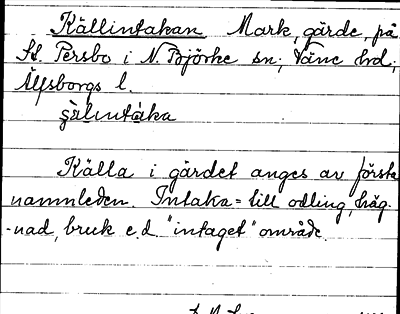 Källintakan Mark, gärde, på
St. Persbo i N. Björke sn; Väne hrd;
Älfsborgs l.
Källa i gärdet anges av första
namnleden. Intaka = till odling, häg-
-nad, bruk e.d. "intaget" område.